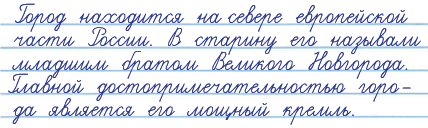 Город находится на севере европейской
части России. В старину его называли
младшим братом Великого Новгорода.
Главной достопримечательностью горо-
да является его мощный кремль.